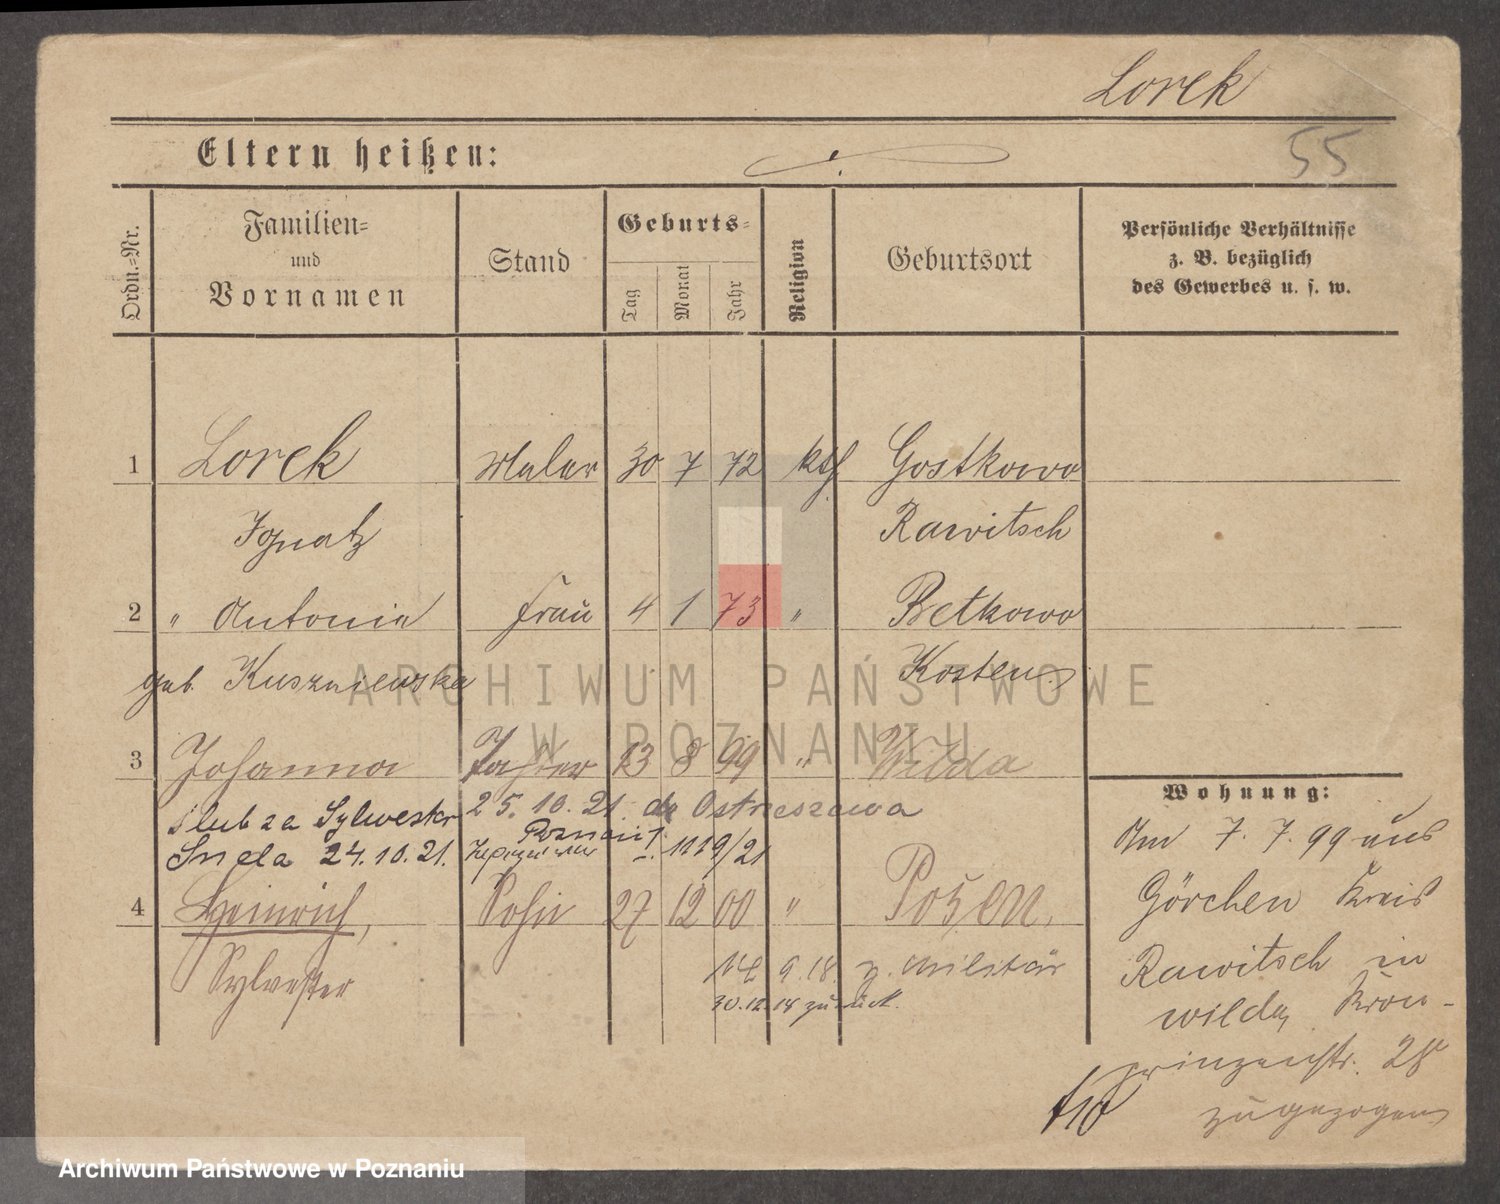 Lorek
55
Eltern heißen:
Ordn.=Nr.
Familien=
und
Vornamen
Stand
Geburts=
Tag
Monat
Jahr
Religion
Geburtsort
Persönliche Verhältnisse
z. B. bezüglich
des Gewerbes u. s. w.
1 Lorek Maler 30 7 72 kth Gostkowo
Ignatz Rawitsch
2 " Antonie Frau 4 1 73 " Betkowo
geb. Kuszniewska Kosten
3 Johanna Tochter 13 8 99 " Wilda
ślub za Sylwestr 25.10.21. do Ostrzeszowa
Poznań
24.10.21. 1119/21
4 Heinrich, Sohn 27 12 00 " Posen.
Sylvester
14 9.18. z. Militär
30.12.18 zurück.
Wohnung:
Am 7.7.99 aus
Görchen Kreis
Rawitsch in
Wilda, Kron-
prinzenstr. 28
zugezogen
ARCHIWUM PAŃSTWOWE
W POZNANIU
Archiwum Państwowe w Poznaniu